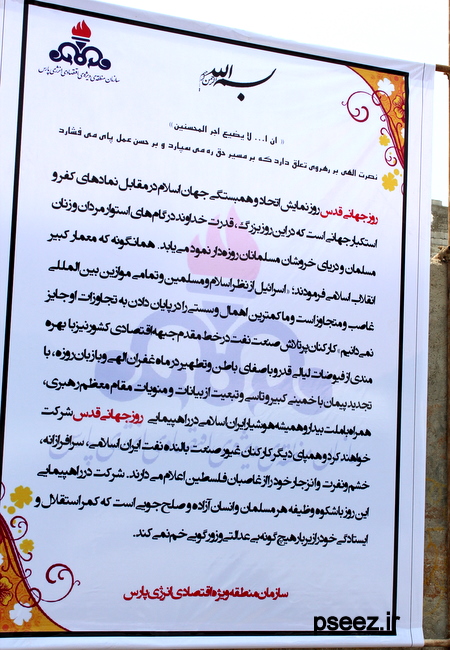 سازمان منطقه‌ی ویژه‌ی اقتصادی انرژی پارس
بسم الله
« ان ا... لا یضیع اجر المحسنین »
نصرت الهی بر رهروی تعلق دارد که بر مسیر حق ره می سپارد و بر حسن عمل پای می فشارد
روز جهانی قدس روز نمایش اتحاد و همبستگی جهان اسلام در مقابل نمادهای کفر و
استکبار جهانی است که در این روز بزرگ، قدرت خداوند در گام های استوار مردان و زنان
مسلمان و دریای خروشان مسلمانان روزه دار نمود می یابد. همانگونه که معمار کبیر
انقلاب اسلامی فرمودند: « اسرائیل از نظر اسلام و مسلمین و تمامی موازین بین المللی
غاصب و متجاوز است و ما کمترین اهمال و سستی را در پایان دادن به تجاوزات او جایز
نمی دانیم» کارکنان پر تلاش صنعت نفت در خط مقدم جبهه اقتصادی کشور نیز با بهره
مندی از فیوضات لیالی قدر و با صفای باطن و تطهیر در ماه غفران الهی و با زبان روزه ، با
تجدید پیمان با خمینی کبیر و تاسی و تبعیت از بیانات و منویات مقام معظم رهبری،
همراه با ملت بیدار و همیشه هوشیار ایران اسلامی در راهپیمایی روز جهانی قدس شرکت
خواهند کرد و همپای دیگر کارکنان غیور صنعت بالنده نفت ایران اسلامی، سرافرازانه،
خشم و نفرت و انزجار خود را از غاصبان فلسطین اعلام می دارند. شرکت در راهپیمایی
این روز باشکوه وظیفه هر مسلمان و انسان آزاده و صلح جویی است که کمر استقلال و
ایستادگی خود را زیر بار هیچ گونه بی عدالتی و زور گویی خم نمی کند.
سازمان منطقه ویژه اقتصادی انرژی پارس
pseez.ir